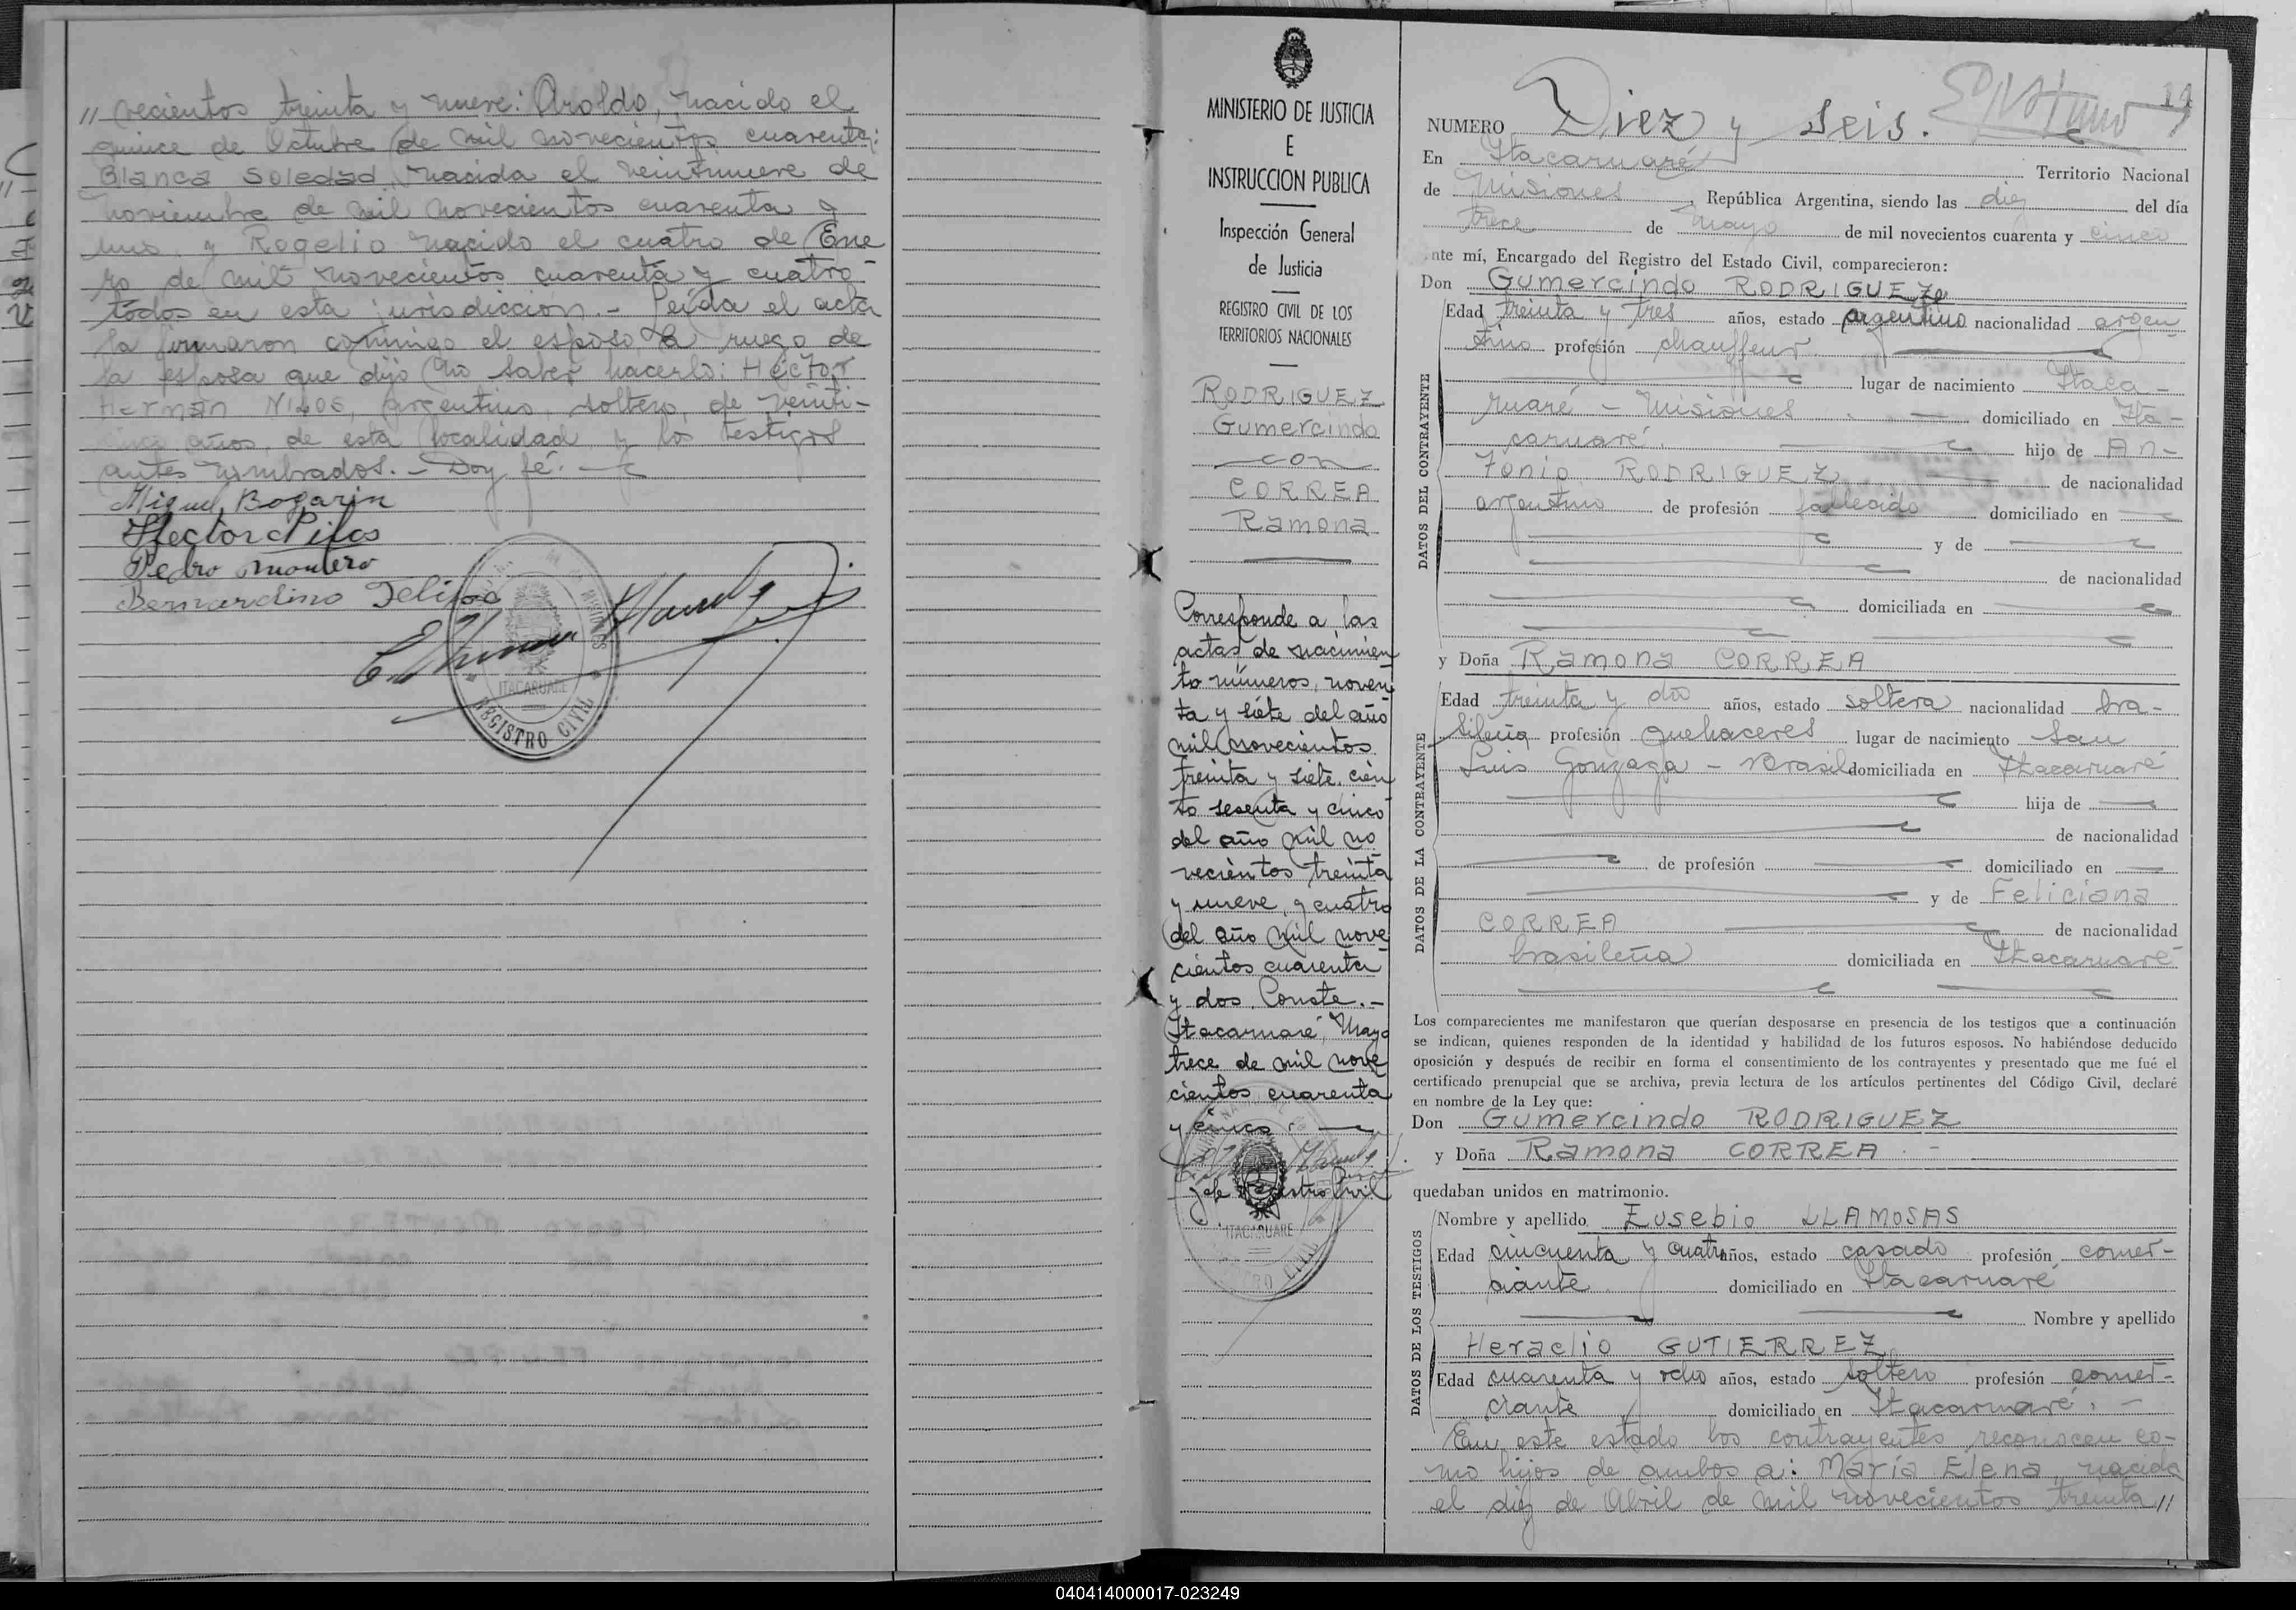 // vecientos treinta y nueve: Aroldo, nacido el
quince de Octubre de mil novecientos cuarenta:
Blanca Soledad nacida el veintinueve de
noviembre de mil novecientos cuarenta y
uno y Rogelio nacido el cuatro de Ene
ro de mil novecientos cuarenta y cuatro
todos en esta jurisdiccion.- Leida el acta
la firmaron conmigo el esposo a ruego de
la esposa que dijo no saber hacerlo: Héctor
Hernán argentino, soltero, de veinti-
cinco años, de esta localidad y los testigos
antes nombrados. - Doy fé.
Miguel Bogarin
Hector
Pedro Montero
Bernardino Felipe
MISIONES
ITACARUARE
REGISTRO CIVIL
MINISTERIO DE JUSTICIA
E
INSTRUCCION PUBLICA
Inspección General
de Justicia
REGISTRO CIVIL DE LOS
TERRITORIOS NACIONALES
RODRIGUEZ
Gumercindo
con
CORREA
Ramona
Corresponde a las
actas de nacimien
to números, noven
ta y siete del año
mil novecientos
treinta y siete, cien
to sesenta y cinco
del año mil no
vecientos treinta
y nueve, y cuatro
del año mil nove
cientos cuarenta
y dos. Conste.-
Itacaruaré, Mayo
trece de mil nove
cientos cuarenta
y cinco.
Jefe Registro Civil
ITACARUARE
NUMERO Diez y Seis.
En Itacaruaré Territorio Nacional
de Misiones, República Argentina, siendo las diez del día
trece de Mayo de mil novecientos cuarenta y cinco
nte mí, Encargado del Registro del Estado Civil, comparecieron:
Don Gumercindo RODRIGUEZ
DATOS DEL CONTRAYENTE
Edad treinta y tres años, estado argentino nacionalidad argen
tino profesión chauffeur.
lugar de nacimiento Itaca-
ruaré - Misiones domiciliado en Ita-
caruaré. hijo de An-
tonio RODRIGUEZ de nacionalidad
argentino de profesión fallecido domiciliado en
y de
de nacionalidad
domiciliada en
y Doña Ramona CORREA
DATOS DE LA CONTRAYENTE
Edad treinta y dos años, estado soltera nacionalidad bra-
sileña profesión quehaceres lugar de nacimiento San
Luis Gonzaga - Brasil domiciliada en Itacaruaré
hija de
de nacionalidad
de profesión domiciliado en
y de Feliciana
CORREA de nacionalidad
brasileña domiciliada en Itacaruaré
Los comparecientes me manifestaron que querían desposarse en presencia de los testigos que a continuación
se indican, quienes responden de la identidad y habilidad de los futuros esposos. No habiéndose deducido
oposición y después de recibir en forma el consentimiento de los contrayentes y presentado que me fué el
certificado prenupcial que se archiva, previa lectura de los artículos pertinentes del Código Civil, declaré
en nombre de la Ley que:
Don Gumercindo RODRIGUEZ
y Doña Ramona CORREA. -
quedaban unidos en matrimonio.
DATOS DE LOS TESTIGOS
Nombre y apellido Eusebio LLAMOSAS
Edad cincuenta y cuatro años, estado casado profesión comer-
ciante domiciliado en Itacaruaré
Nombre y apellido
Heraclio GUTIERREZ
Edad cuarenta y ocho años, estado soltero profesión comer-
ciante domiciliado en Itacaruaré. -
En este estado los contrayentes reconocen co-
mo hijos de ambos a: María Elena, nacida
el diez de Abril de mil novecientos treinta //
040414000017-023249